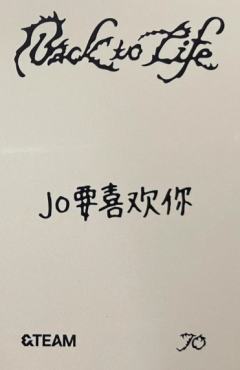 Back to Life
JO要喜欢你
&TEAM
JO